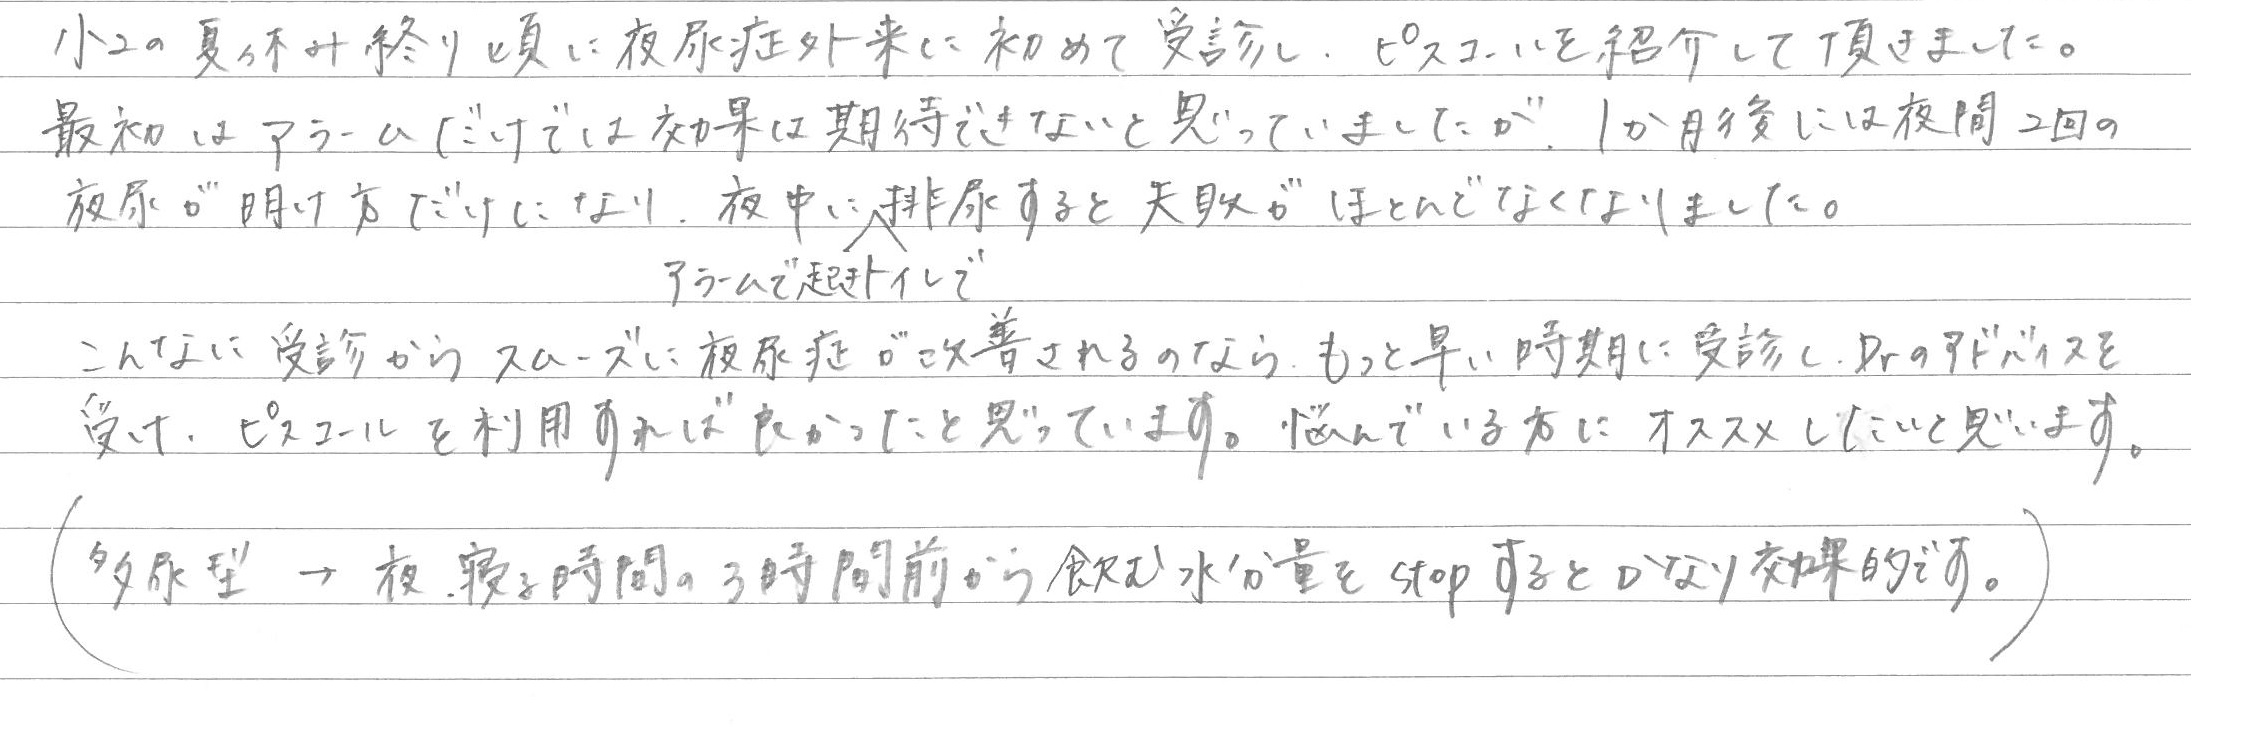 小2の夏休み終り頃に夜尿症外来に初めて受診し、ピスコールを紹介して頂きました。
最初はアラームだけでは効果は期待できないと思っていましたが、1か月後には夜間2回の
夜尿が明け方だけになり、夜中に排尿すると失敗がほとんどなくなりました。
アラームで起きトイレで
こんなに受診からスムーズに夜尿症が改善されるのなら、もっと早い時期に受診し、Drのアドバイスを
受け、ピスコールを利用すれば良かったと思っています。悩んでいる方にオススメしたいと思います。
(多尿型→夜、寝る時間の3時間前から飲む水分量をstopするとかなり効果的です。)